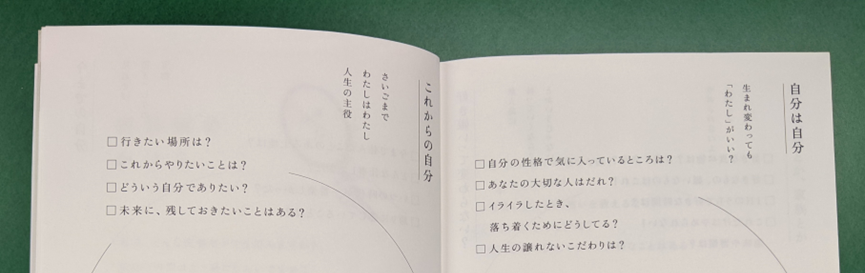 自分は自分
生まれ変わっても
「わたし」がいい？
□自分の性格で気に入っているところは？
□あなたの大切な人はだれ？
□イライラしたとき、
落ち着くためにどうしてる？
□人生の譲れないこだわりは？
これからの自分
さいごまで
わたしはわたし
人生の主役
□行きたい場所は？
□これからやりたいことは？
□どういう自分でありたい？
□未来に、残しておきたいことはある？